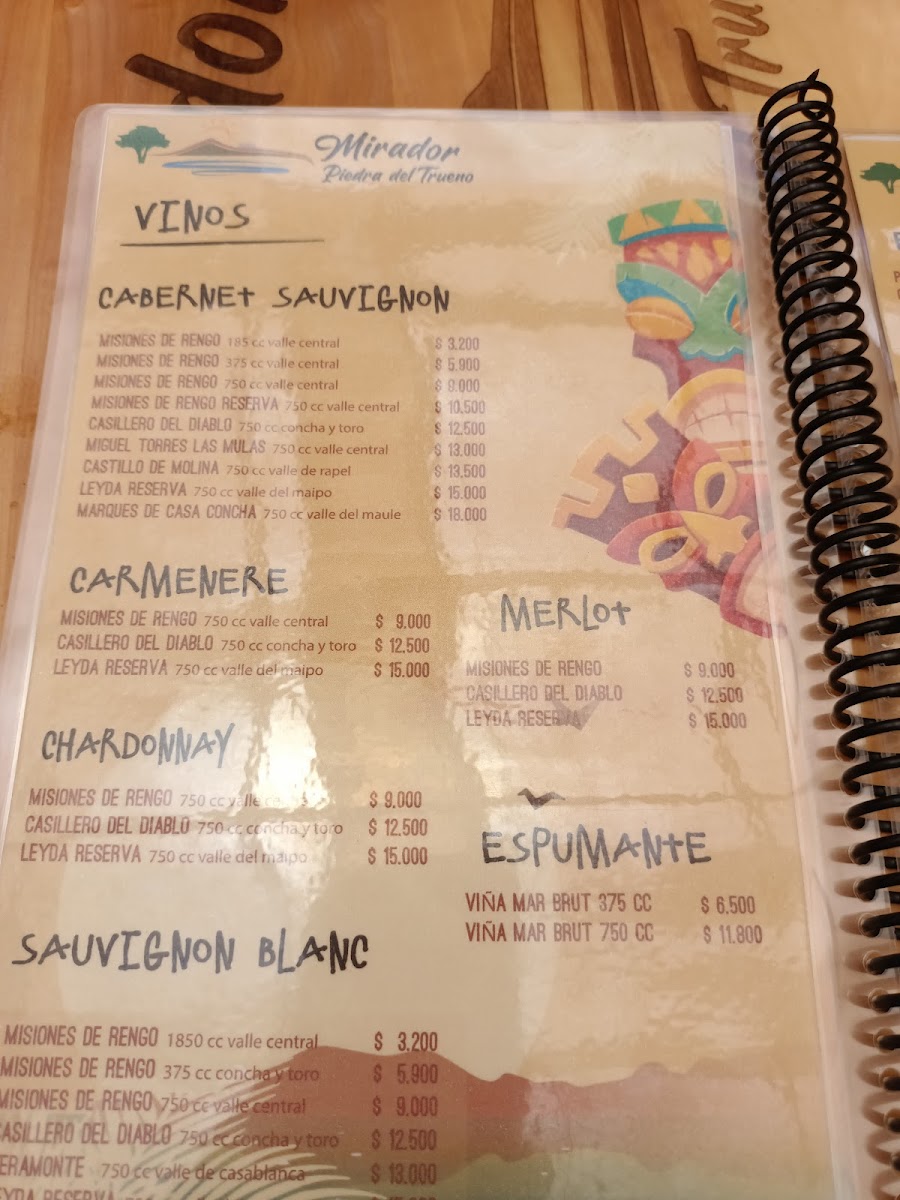 Mirador
Piedra del Trueno
VINOS
CABERNET SAUVIGNON
MISIONES DE RENGO 185 cc valle central $ 3.200
MISIONES DE RENGO 375 cc valle central $ 5.900
MISIONES DE RENGO 750 cc valle central $ 9.000
MISIONES DE RENGO RESERVA 750 cc valle central $ 10.500
CASILLERO DEL DIABLO 750 cc concha y toro $ 12.500
MIGUEL TORRES LAS MULAS 750 cc valle central $ 13.000
CASTILLO DE MOLINA 750 cc valle de rapel $ 13.500
LEYDA RESERVA 750 cc valle del maipo $ 15.000
MARQUES DE CASA CONCHA 750 cc valle del maule $ 18.000
CARMENERE
MISIONES DE RENGO 750 cc valle central $ 9.000
CASILLERO DEL DIABLO 750 cc concha y toro $ 12.500
LEYDA RESERVA 750 cc valle del maipo $ 15.000
MERLOT
MISIONES DE RENGO $ 9.000
CASILLERO DEL DIABLO $ 12.500
LEYDA RESERVA $ 15.000
CHARDONNAY
MISIONES DE RENGO 750 cc valle $ 9.000
CASILLERO DEL DIABLO 750 cc concha y toro $ 12.500
LEYDA RESERVA 750 cc valle del maipo $ 15.000
ESPUMANTE
VIÑA MAR BRUT 375 CC $ 6.500
VIÑA MAR BRUT 750 CC $ 11.800
SAUVIGNON BLANC
MISIONES DE RENGO 1850 cc valle central $ 3.200
MISIONES DE RENGO 375 cc concha y toro $ 5.900
MISIONES DE RENGO 750 cc valle central $ 9.000
CASILLERO DEL DIABLO 750 cc concha y toro $ 12.500
ERAMONTE 750 cc valle de casablanca $ 13.000